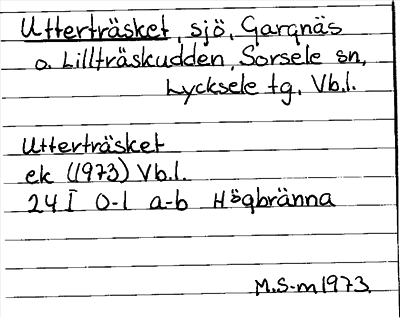 Utterträsket, sjö, Gargnäs
o. Lillträskudden, Sorsele sn,
Lycksele tg, Vb.l.
Utterträsket
ek (1973) Vb.l.
24 I 0-1 a-b Högbränna
M.S-m 1973.